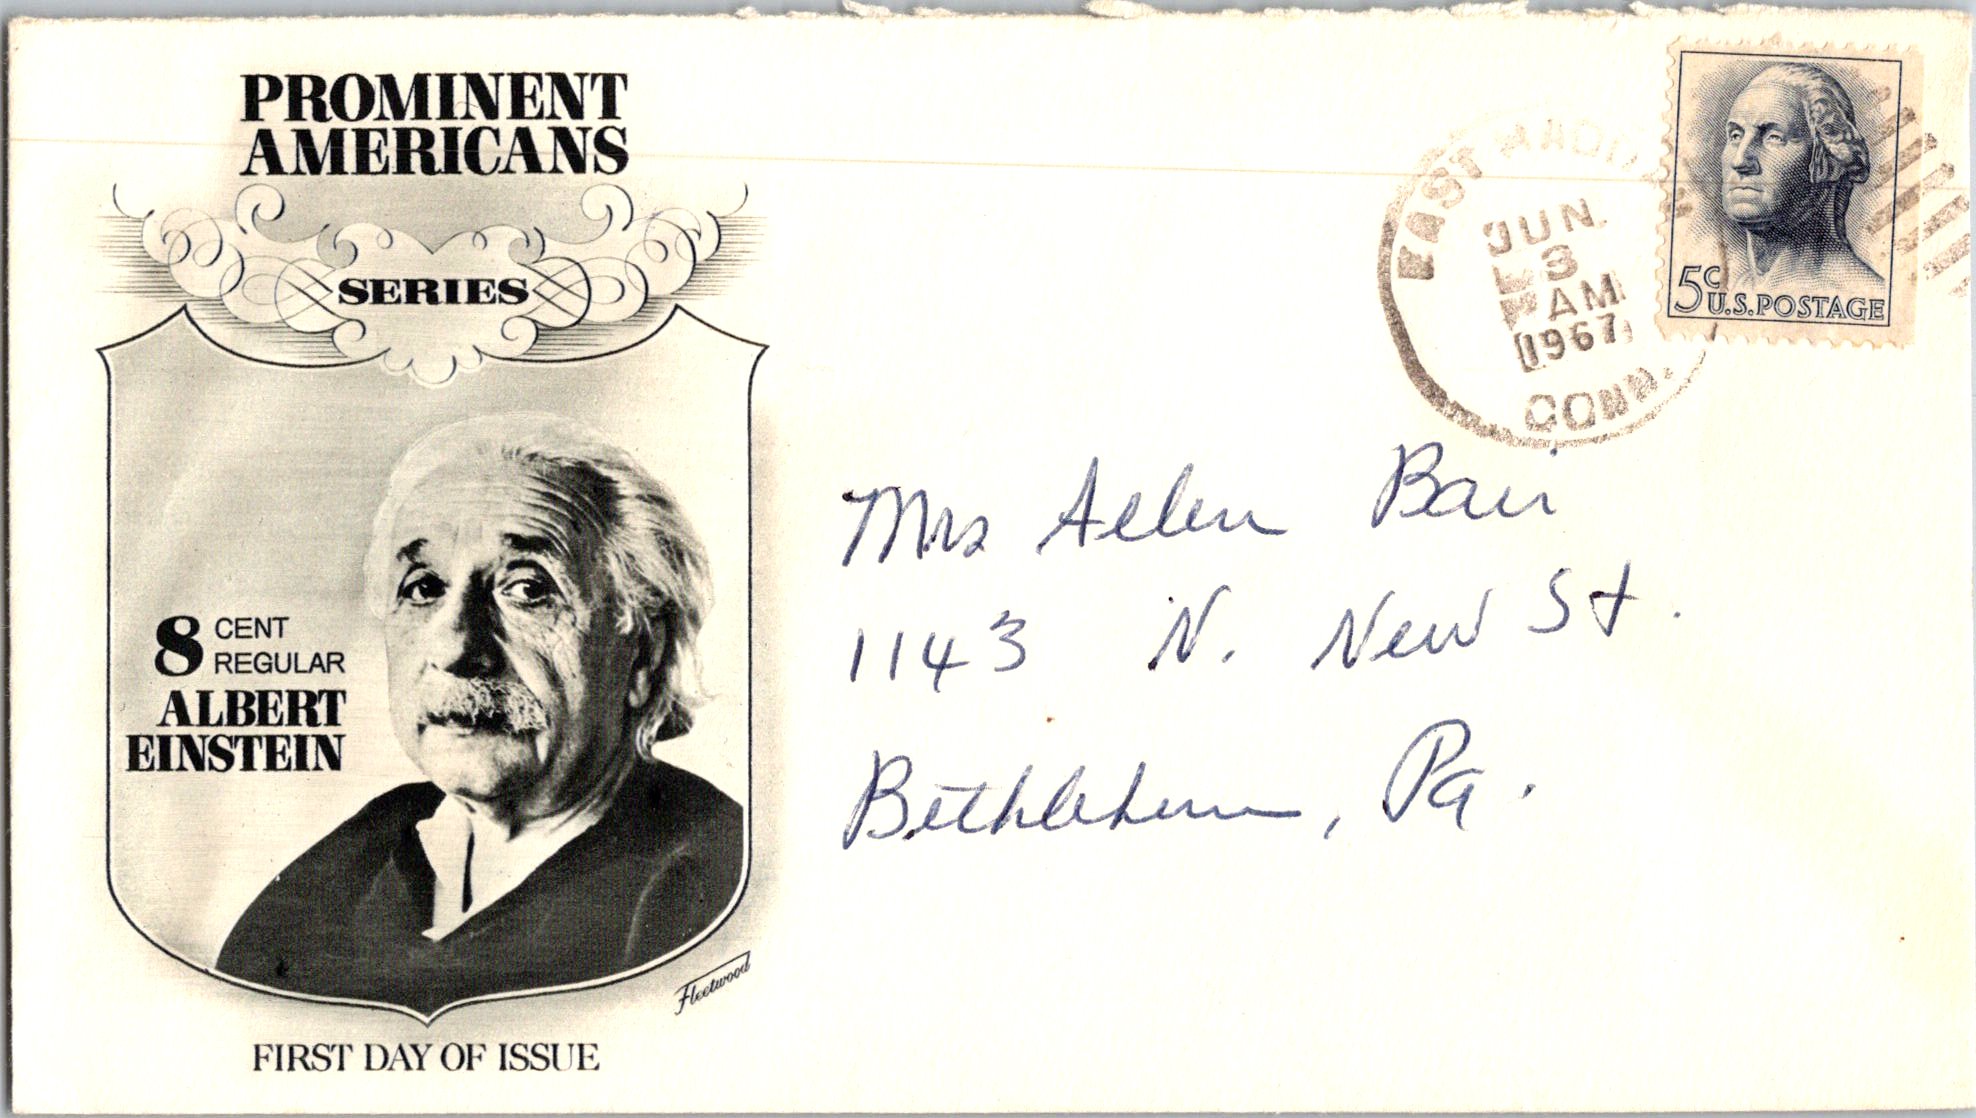 PROMINENT
AMERICANS
SERIES
8 CENT
REGULAR
ALBERT
EINSTEIN
Fleetwood
FIRST DAY OF ISSUE
EAST
JUN.
3
AM
1967
CONN.
5c U.S. POSTAGE
Mrs Allen Bair
1143 N. New St.
Bethlehem, Pa.